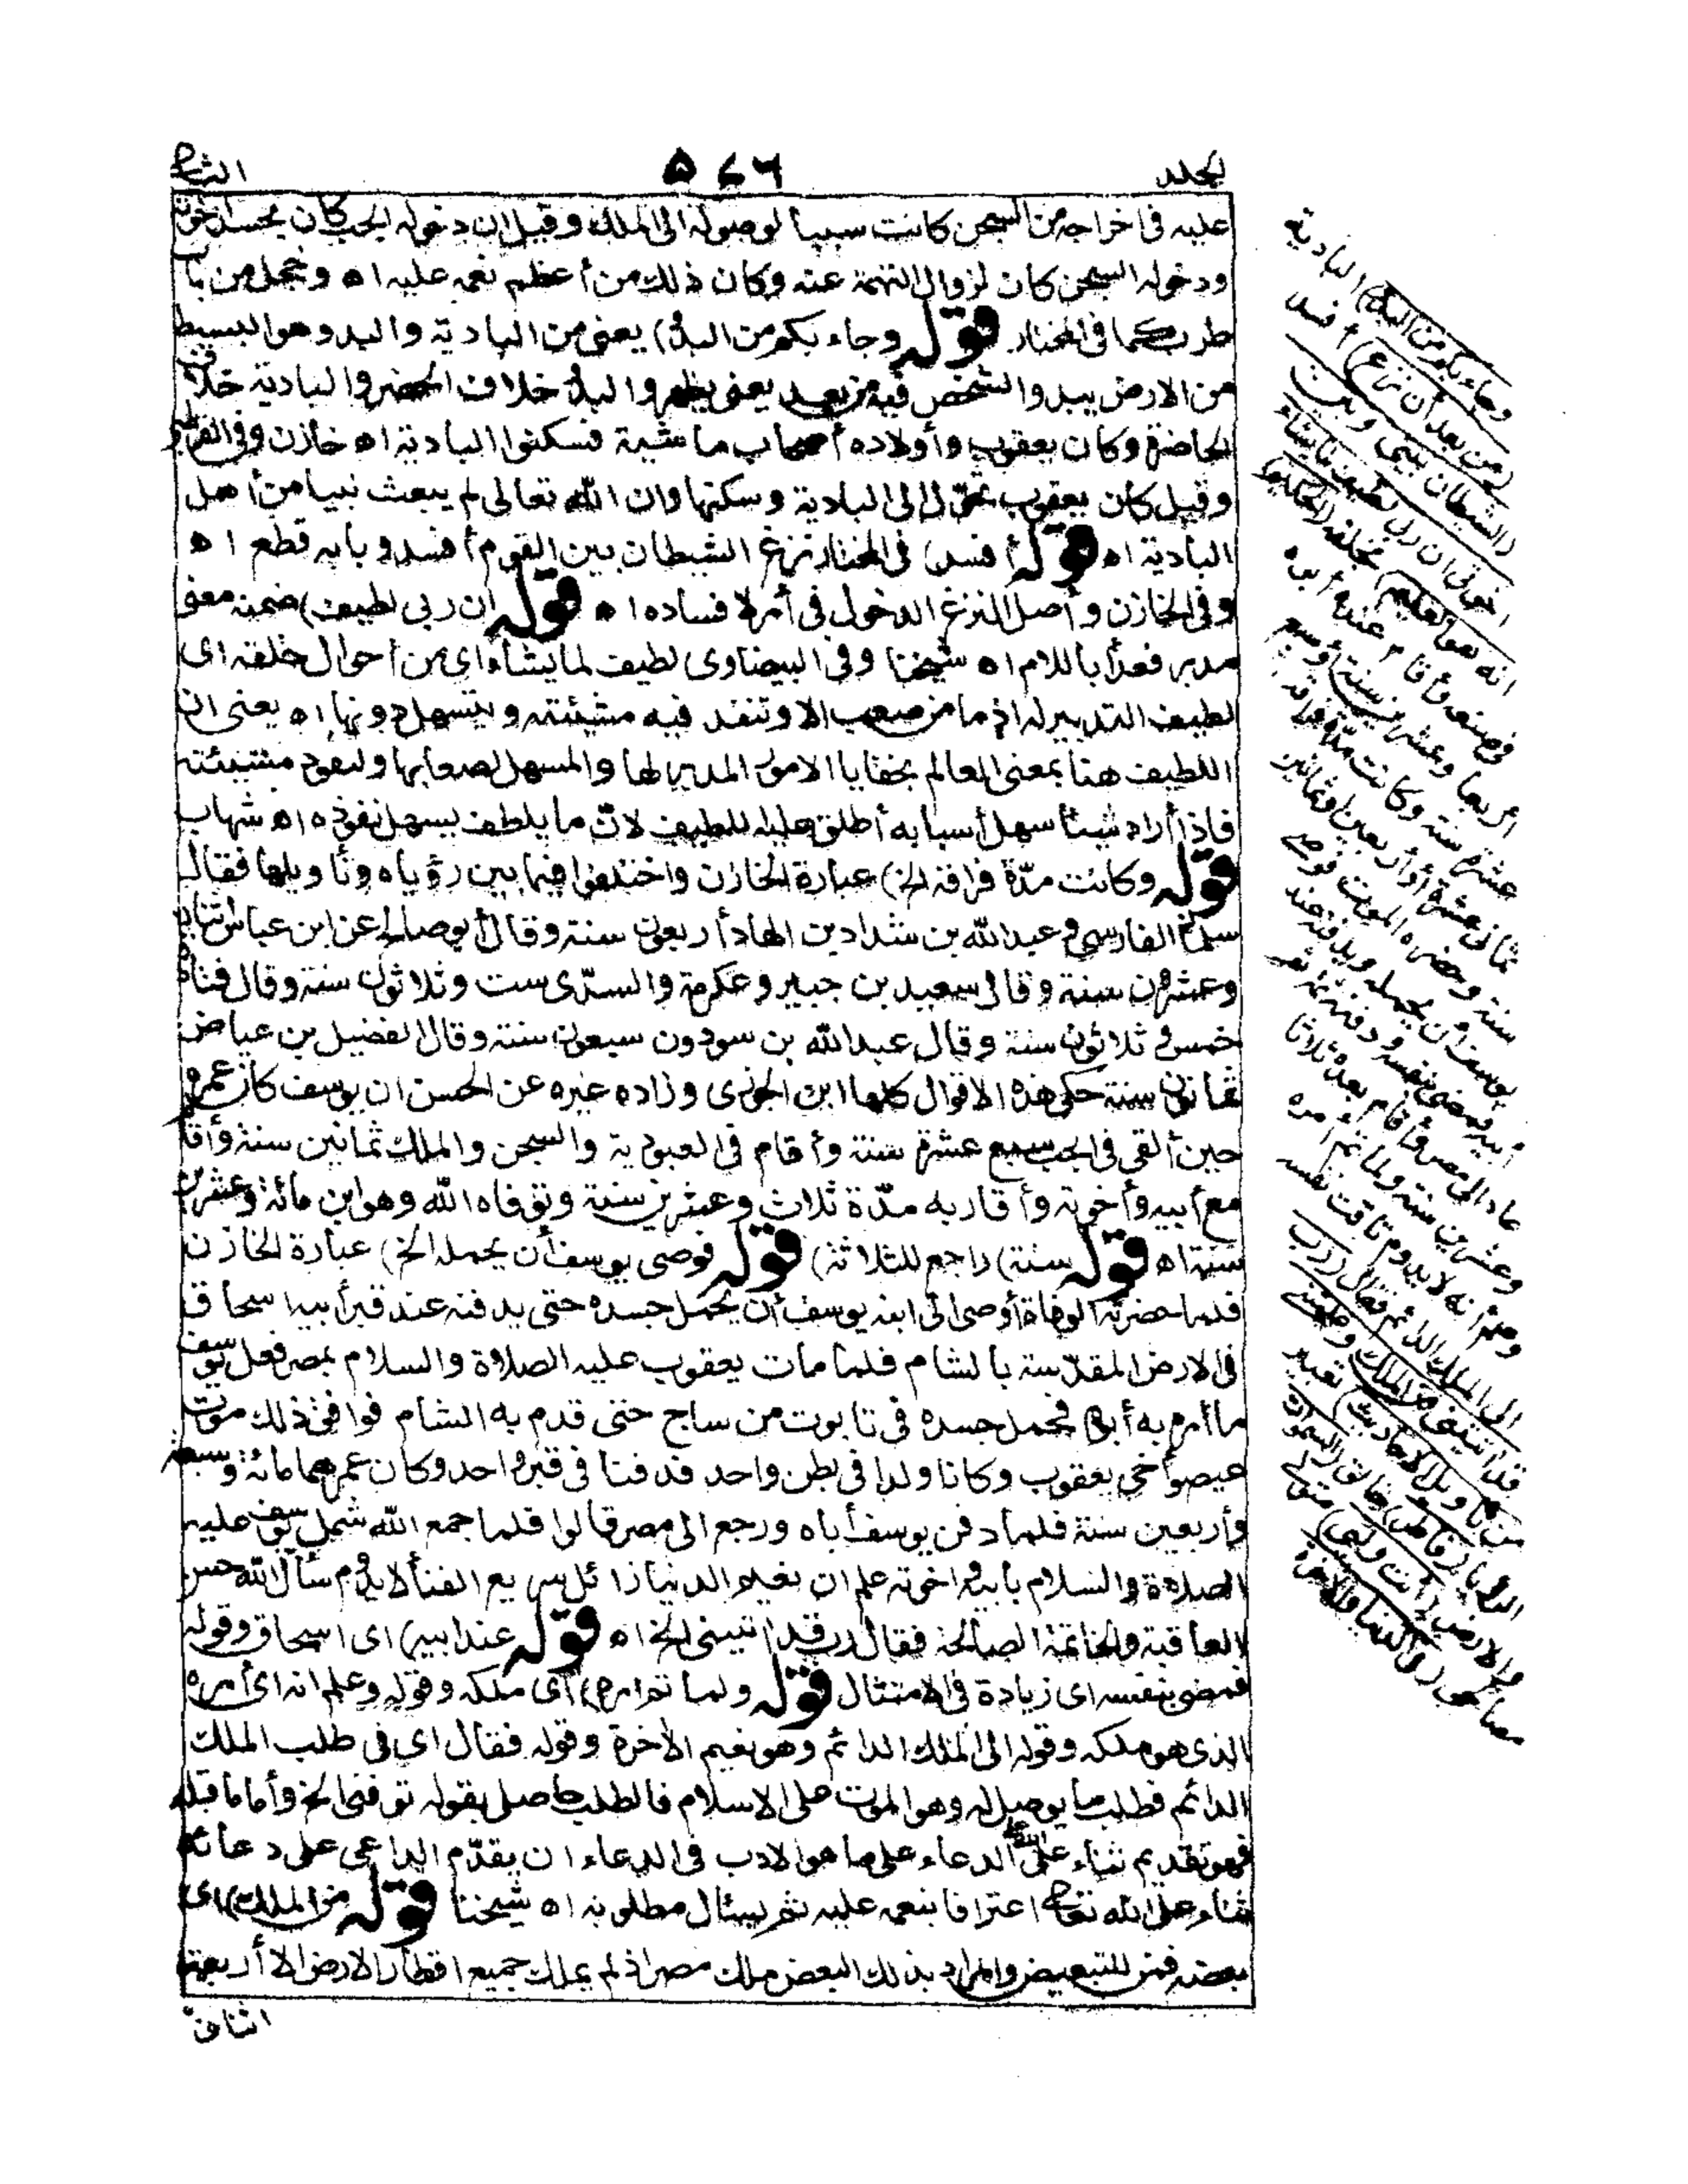 المجلد
٥٧٦
الثاني
عليه فى اخراجه من السجن كانت سببا لوصوله الى الملك وقيل ان دخوله الجب كان بحسد اخوته
ودخوله السجن كان لزوال التهمة عنه وكان ذلك من أعظم نعمه عليه اه وخجل من باب
طرب كما فى المختار قوله وجاء بكم من البدو) يعنى من البادية والبدو هو البسيط
من الارض يبدو الشخص فيه من بعد يعنى يظهر والبدو خلاف الحضر والبادية خلاف
الحاضرة وكان يعقوب وأولاده أصحاب ماشية فسكنوا البادية اه خازن وفى القرطبى
وقيل كان يعقوب تحوّل الى البادية وسكنها وان الله تعالى لم يبعث نبيا من أهل
البادية اه قوله أفسد) فى المختار نزغ الشيطان بين القوم أفسد وبابه قطع اه
وفى الخازن وأصل النزغ الدخول فى أمر لا فساده اه قوله ان ربى لطيف) ضمنه معنى
مدبر فعدّاه باللام اه شيخنا وفى البيضاوى لطيف لما يشاء اى من أحوال خلقه اى
لطيف التدبير له اذ ما من صعب الا وتنفذ فيه مشيئته ويتسهل دونها اه يعنى ان
اللطيف هنا بمعنى العالم بخفايا الامور المدبر لها والمسهل لصعابها ولنفوذ مشيئته
فاذا أراد شيئا سهل أسبابه أطلق عليه اللطيف لانّ ما يلطف يسهل نفوذه اه شهاب
قوله وكانت مدّة فراقه الخ) عبارة الخازن واختلفوا فيما بين رؤياه وتأويلها فقال
سلمان الفارسى وعبد الله بن شداد بن الهاد أربعون سنة وقال أبو صالح عن ابن عباس اثنان
وعشرون سنة وقال سعيد بن جبير وعكرمة والسدّى ست وثلاثون سنة وقال قتادة
خمس وثلاثون سنة وقال عبد الله بن سودون سبعون سنة وقال الفضيل بن عياض
ثمانون سنة حكى هذه الاقوال كلها ابن الجوزى وزاده غيره عن الحسن ان يوسف كان عمره
حين ألقى فى الجب سبع عشرة سنة وأقام فى العبودية والسجن والملك ثمانين سنة وأقام
مع أبيه وأخوته وأقاربه مدّة ثلاث وعشرين سنة وتوفاه الله وهو ابن مائة وعشرين
سنة اه قوله سنة) راجع للثلاثة) قوله فوصى يوسف أن يحمله الخ) عبارة الخازن
فلما حضرته الوفاة أوصى الى ابنه يوسف أن يحمل جسده حتى يدفنه عند قبر أبيه اسحاق
فى الارض المقدّسة بالشام فلما مات يعقوب عليه الصلاة والسلام بمصر فعل يوسف
ما أمره به أبوه فحمل جسده فى تابوت من ساج حتى قدم به الشام فوافق ذلك موت
عيصو أخى يعقوب وكانا ولدا فى بطن واحد فدفنا فى قبر واحد وكان عمرهما مائة وسبعة
وأربعين سنة فلما دفن يوسف أباه ورجع الى مصر قالوا فلما جمع الله شمل يوسف عليه
الصلاة والسلام بأبيه واخوته علم ان نعيم الدنيا زائل سريع الفنأ لا يدوم سأل الله حسن
العاقبة والخاتمة الصالحة فقال رب قد آتيتنى الخ اه قوله عند أبيه) اى اسحاق وقوله
فمضى بنفسه اى زيادة فى الامتثال قوله ولما تم أمره) أى ملكه وقوله وعلم انه اى أمره
الذى هو ملكه وقوله الى الملك الدائم وهو نعيم الآخرة وقوله فقال اى فى طلب الملك
الدائم فطلب ما يوصل له وهو الموت على الاسلام فالطلب حاصل بقوله توفنى الخ وأما ما قبله
فهو تقديم ثناء على الله الدعاء على ما هو الادب فى الدعاء ان يقدّم الداعى على دعائه
ثناء على الله تعالى اعترافا بنعمه عليه ثم يسئال مطلوبه اه شيخنا قوله من الملك) اى
بعضه فمن للتبعيض والمراد بذلك البعض ملك مصر اذ لم يملك جميع اقطار الارض الا أربعة
اثنان
وجاء بكم من البدو) البادية
(من بعد أن نزغ) أفسد
(الشيطان بينى وبين
اخوتى ان ربى لطيف لما يشاء
انه هو العليم) بخلقه (الحكيم)
فى صنعه وأقام عنده أبوه
أربعا وعشرين سنة أو سبع
عشرة سنة وكانت مدّة فراقه
ثمانى عشرة أو أربعين أو ثمانين
سنة وحضره الموت فوصى
يوسف أن يحمله ويدفنه عند
أبيه فمضى بنفسه ودفنه ثم
عاد الى مصر وأقام بعده ثلاثا
وعشرين سنة ولما تم أمره
وعلم أنه لا يدوم تاقت نفسه
الى الملك الدائم فقال (رب
قد آتيتنى من الملك وعلمتنى
من تأويل الاحاديث) تعبير
الرؤيا (فاطر) خالق (السموات
والارض أنت وليى) متولى
مصالحى (فى الدنيا والآخرة